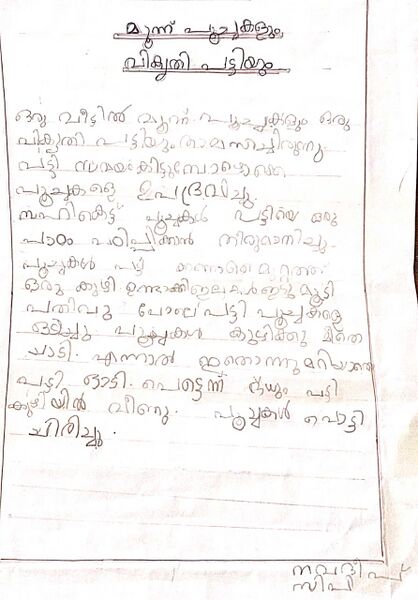 മൂന്ന് പൂച്ചകളും
വികൃതി പട്ടിയും
ഒരു വീട്ടിൽ മൂന്ന് പൂച്ചകളും ഒരു
വികൃതി പട്ടിയും താമസിച്ചിരുന്നു.
പട്ടി സമയംകിട്ടുമ്പോഴൊക്കെ
പൂച്ചകളെ ഉപദ്രവിച്ചു.
സഹികെട്ട് പൂച്ചകൾ പട്ടിയെ ഒരു
പാഠം പഠിപ്പിക്കാൻ തീരുമാനിച്ചു.
പൂച്ചകൾ പട്ടി കാണാതെ മുറ്റത്ത്
ഒരു കുഴി ഉണ്ടാക്കി ഇലകൾ ഇട്ടു മൂടി
പതിവു പോലെ പട്ടി പൂച്ചകളെ
ഓടിച്ചു പൂച്ചകൾ കുഴിക്കു മീതെ
ചാടി. എന്നാൽ ഇതൊന്നുമറിയാതെ
പട്ടി ഓടി. പെട്ടെന്ന് പട്ടി
കുഴിയിൽ വീണു. പൂച്ചകൾ പൊട്ടി
ചിരിച്ചു.
നവദീപ്
സിപി